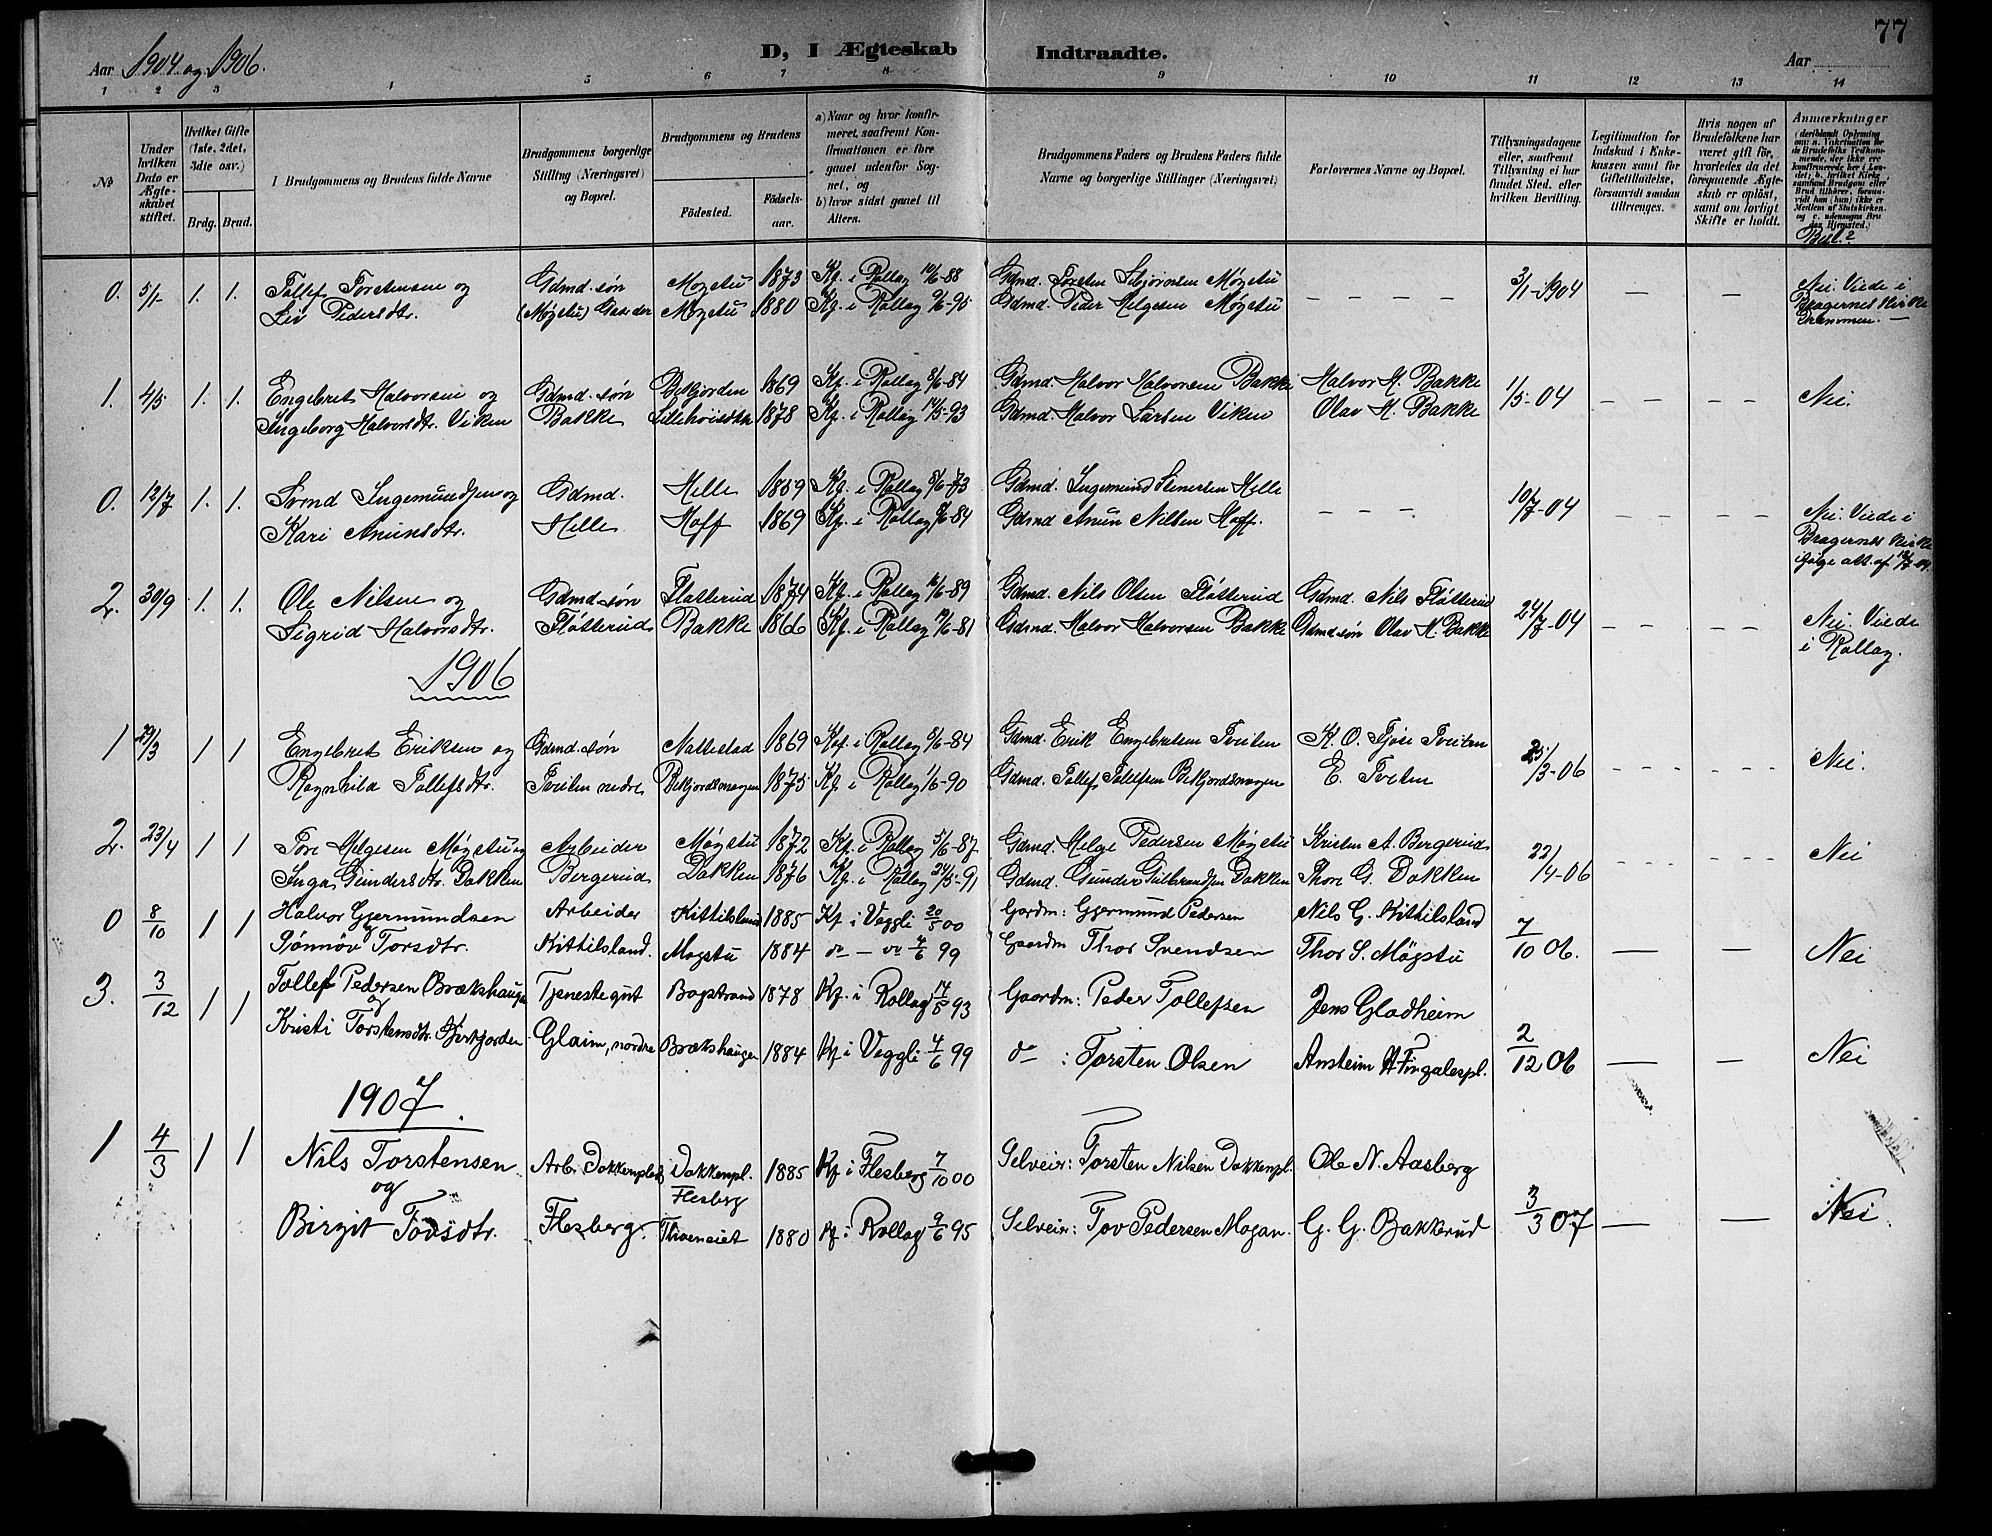 77
Aar 1904 og 1906.
D, I Ægteskab Indtraadte.
Aar
1 2 3 4 5 6 7 8 9 10 11 12 13 14
№
Under hvilken Dato er Ægteskabet stiftet.
Hvilket Gifte (1ste, 2det, 3die osv.)
Brdg. Brud.
I Brudgommens og Brudens fulde Navne
Brudgommens borgerlige Stilling (Næringsvei) og Bopæl.
Brudgommens og Brudens
Fødested.
Fødselsaar.
a) Naar og hvor konfirmeret, saafremt Konfirmationen er foregaaet udenfor Sognet, og
b) hvor sidst gaaet til Alters.
Brudgommens Faders og Brudens Faders fulde Navne og borgerlige Stillinger (Næringsvei)
Forlovernes Navne og Bopæl.
Tillysningsdagene eller, saafremt Tillysning ei har fundet Sted, efter hvilken Bevilling.
Legitimation for Indskud i Enkekassen samt for Giftetilladelse, forsaavidt saadan tiltrænges.
Hvis nogen af Brudefolkene har været gift før, hvorledes da det foregaaende Ægteskab er opløst, samt om lovligt Skifte er holdt.
Anmærkninger
Besl.?
0. 5/1 1. 1. Tollef Torstensen og Gdmd. søn Møgstu 1873 Kf. i Rollag 10/6-88 Gdmd. Torsten Møgstu 3/1-1904 — — Nei. Viede i
Liv Pedersdtr. (Møgstu) Møgstu 1880 Kf. i Rollag 9/6-95 Gdmd. Peder Helgesen Møgstu Bragernes Kirke
Drammen.
1. 4/5 1. 1. Engebret Halvorsen og Gdmd. søn Bekjorden 1869 Kf. i Rollag 8/6-84 Gdmd. Halvor Halvorsen Bakke Halvor H. Bakke 1/5-04 Nei.
Ingeborg Halvorsdtr. Viken Bakke 1878 Kf. i Rollag 14/5-93 Gdmd. Halvor Larsen Viken Olav H. Bakke
0. 12/7 1. 1. Ingemundsen og Gdmd. Helle 1859 Kf. i Rollag 8/6-73 Gdmd. Ingemund Stenersen Helle 10/7-04 Nei. Viede i
Kari Amundsdtr. Helle Hoff 1869 Kf. i Rollag 8/6-84 Gdmd Amun Nilsen Hoff. Bragernes Kirke
ifølge att. af 12/7-04.
2. 30/9 1. 1. Ole Nilsen og Gdmd. søn Fløtterud 1874 Kf. i Rollag 16/6-89 Gdmd. Nils Olsen Fløtterud Gdmd. Nils Fløtterud 24/7-04 Nei. Viede
Sigrid Halvorsdtr. Fløtterud Bakke 1866 Kf. i Rollag 19/6-81 Gdmd. Halvor Halvorsen Bakke Gdmd. søn Olav H. Bakke i Rollag.
1906
1 29/3 1 1 Engebret Eriksen og Gdmd. søn Nattestad 1869 Kof. i Rollag 8/6-84 Gdmd. Erik Engebretsen Tveiten K. O. Fjøse Tveiten 25/3-06 Nei.
Ragnhild Tollefsdtr. Tveiten nedre Bekjordsmogen 1875 Kf. i Rollag 1/6-90 Gdmd. Tollef Tollefsen Bekjordsmogen E. Tveiten
2. 23/4 1 1 Tore Helgesen Møgstu og Arbeider Møgstu 1872 Kf. i Rollag 5/6-87 Gdmd. Helge Pedersen Møgstu Kristen A. Bergerud 22/4-06 Nei
Inga Gundersdtr. Dokken Bergerud Dokken 1876 Kf. i Rollag 24/5-91 Gdmd. Gunder Gulbrandsen Dokken Thore G. Dokken
0 8/10 1 1 Halvor Gjermundsen Arbeider Kittilsland 1885 Kf i Veggli 20/5 00 Gaardm: Gjermund Pedersen Nils G. Kittilsland 7/10 06. — — Nei
og Sønnøv Torsdtr. Kittilsland. Mogstu 1884 do — do 4/6 99 Gaardm Thor Svendsen Thor S. Mögstu
3. 3/12 1 1 Tollef Pedersen Brækshaugen Tjenestegut Bogstrand 1878 Kf. i Rollag 14/5 93 Gaardm: Peder Tollefsen Jens Gladheim
og
Kristi Torstensdtr. Glaim, nordre Brækshaugen 1884 Kf i Veggli 4/6 99 do : Torsten Olsen Ansteim 2/12 06 — — Nei
1907.
1 4/3 1 1 Nils Torstensen Arb. Dokkenplads Dokkenpl. 1885 Kf i Flesberg 7/10 00 Selveier: Torsten Nilsen Dokkenpl. Ole N. Aasberg
og Flesberg
Birgit Tovsdtr. Flesberg. 1880 Kf. i Rollag 9/6 95 Selveier: Tov Pedersen Mogan. G. G. Bakkerud 3/3 07 — — Nei.